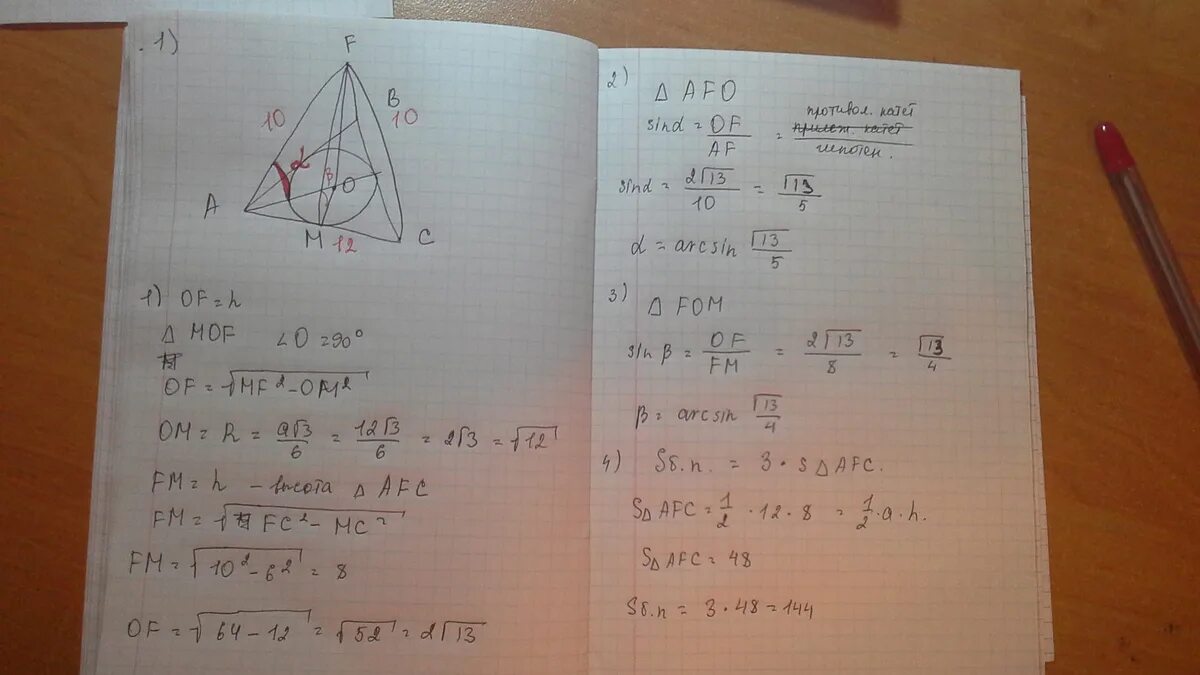 1)
F
B
10
10
α
β
O
A
M
12
C
1) OF = h
△ MOF ∠O = 90°
OF = √(MF² - OM²)
OM = R = a√3/6 = 12√3/6 = 2√3 = √12
FM = h - высота △ AFC
FM = √(FC² - MC²)
FM = √(10² - 6²) = 8
OF = √(64 - 12) = √52 = 2√13
2) △ AFO
sinα = OF/AF = противол. катет / гипотен.
прилеж. катет
sinα = 2√13/10 = √13/5
α = arcsin √13/5
3) △ FOM
sin β = OF/FM = 2√13/8 = √13/4
β = arcsin √13/4
4) Sб.п. = 3 · S△AFC.
S△AFC = 1/2 · 12 · 8 = 1/2 · a · h.
S△AFC = 48
Sб.п = 3 · 48 = 144